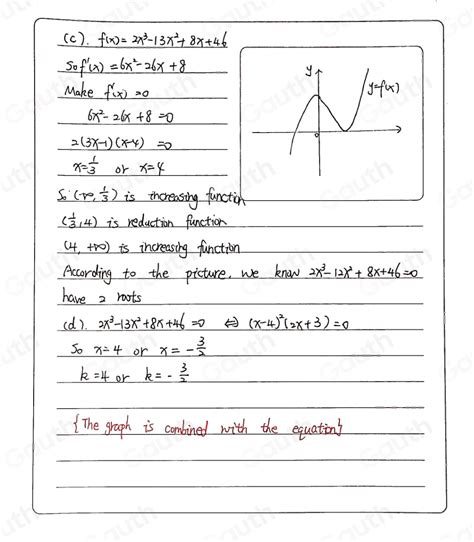 (c). f(x)= 2x³-13x²+8x+46
So f'(x) = 6x²-26x+8
Make f'(x)=0
6x²-26x+8=0
2(3x-1)(x-4)=0
x=1/3 or x=4
y
y=f(x)
x
0
So (-∞, 1/3) is increasing function
(1/3, 4) is reduction function
(4, +∞) is increasing function
According to the picture, we know 2x³-12x²+8x+46=0
have 2 roots
(d). 2x³-13x²+8x+46=0 ⇔ (x-4)²(2x+3)=0
So x=4 or x=-3/2
k=4 or k=-3/2
{The graph is combined with the equation}
Gauth